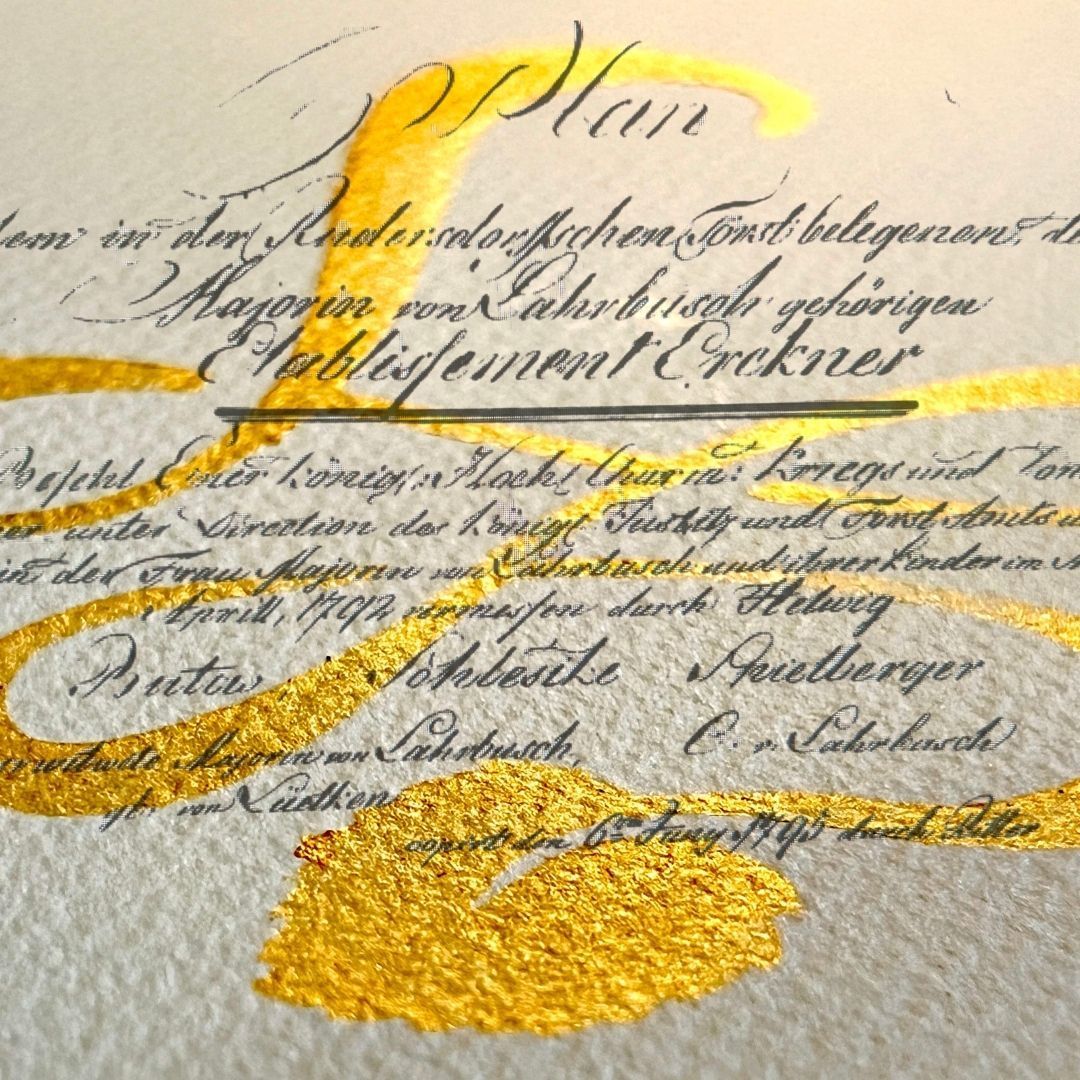 Plan
in der Rüdersdorffschen Forst belegenen
Majorin von Lahrbusch gehörigen
Etablissement Erckner
Befehl Einer königl. Hochl. Churm: Kriegs und
unter Direction des königl. Justitz und Forst Amts
der Frau Majorin von Lahrbusch und ihrer kinder im
Aprill, 1792 vermessen durch Helwig
Schleske Spielberger
Majorin von Lahrbusch, C. v. Lahrbusch
von Lüdtken
copirt den 6ten Juny durch